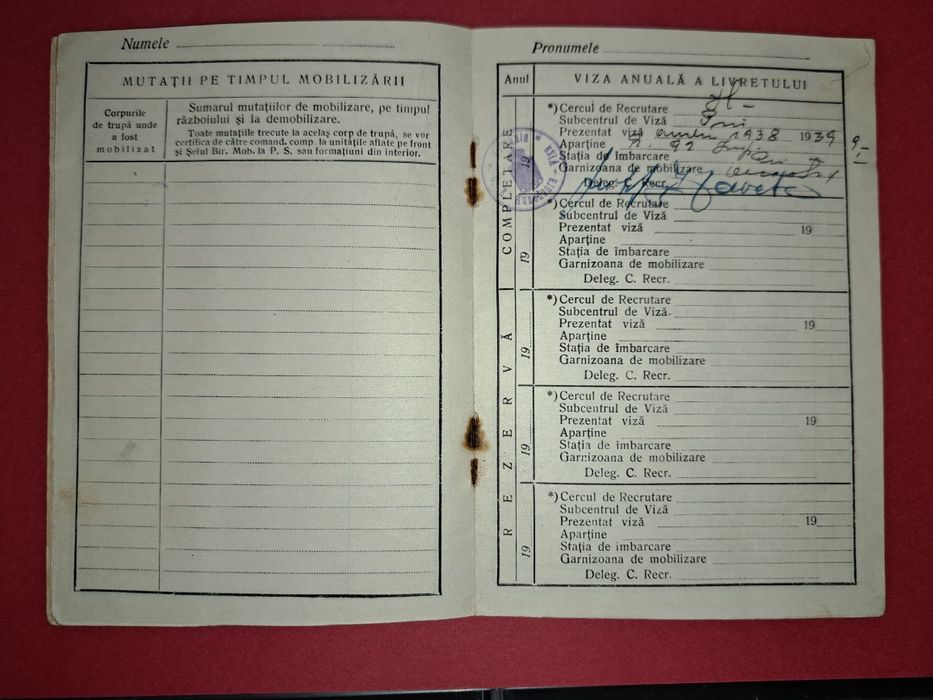 Numele
MUTAȚII PE TIMPUL MOBILIZĂRII
Corpurile
de trupă unde
a fost
mobilizat
Sumarul mutațiilor de mobilizare, pe timpul
războiului și la demobilizare.
Toate mutațiile trecute la acelaș corp de trupă, se vor
certifica de către comand. comp. la unitățile aflate pe front
și Șeful Bir. Mob. la P. S. sau formațiuni din interior.
Pronumele
Anul
VIZA ANUALĂ A LIVRETULUI
COMPLETARE
*) Cercul de Recrutare
Subcentrul de Viză
Prezentat viză 1938 1939
Aparține 92
Stația de îmbarcare
Garnizoana de mobilizare
Deleg. C. Recr.
19
*) Cercul de Recrutare
Subcentrul de Viză
Prezentat viză 19
Aparține
Stația de îmbarcare
Garnizoana de mobilizare
Deleg. C. Recr.
19
REZERVĂ
*) Cercul de Recrutare
Subcentrul de Viză
Prezentat viză 19
Aparține
Stația de îmbarcare
Garnizoana de mobilizare
Deleg. C. Recr.
19
*) Cercul de Recrutare
Subcentrul de Viză
Prezentat viză 19
Aparține
Stația de îmbarcare
Garnizoana de mobilizare
Deleg. C. Recr.
19
*) Cercul de Recrutare
Subcentrul de Viză
Prezentat viză 19
Aparține
Stația de îmbarcare
Garnizoana de mobilizare
Deleg. C. Recr.
19